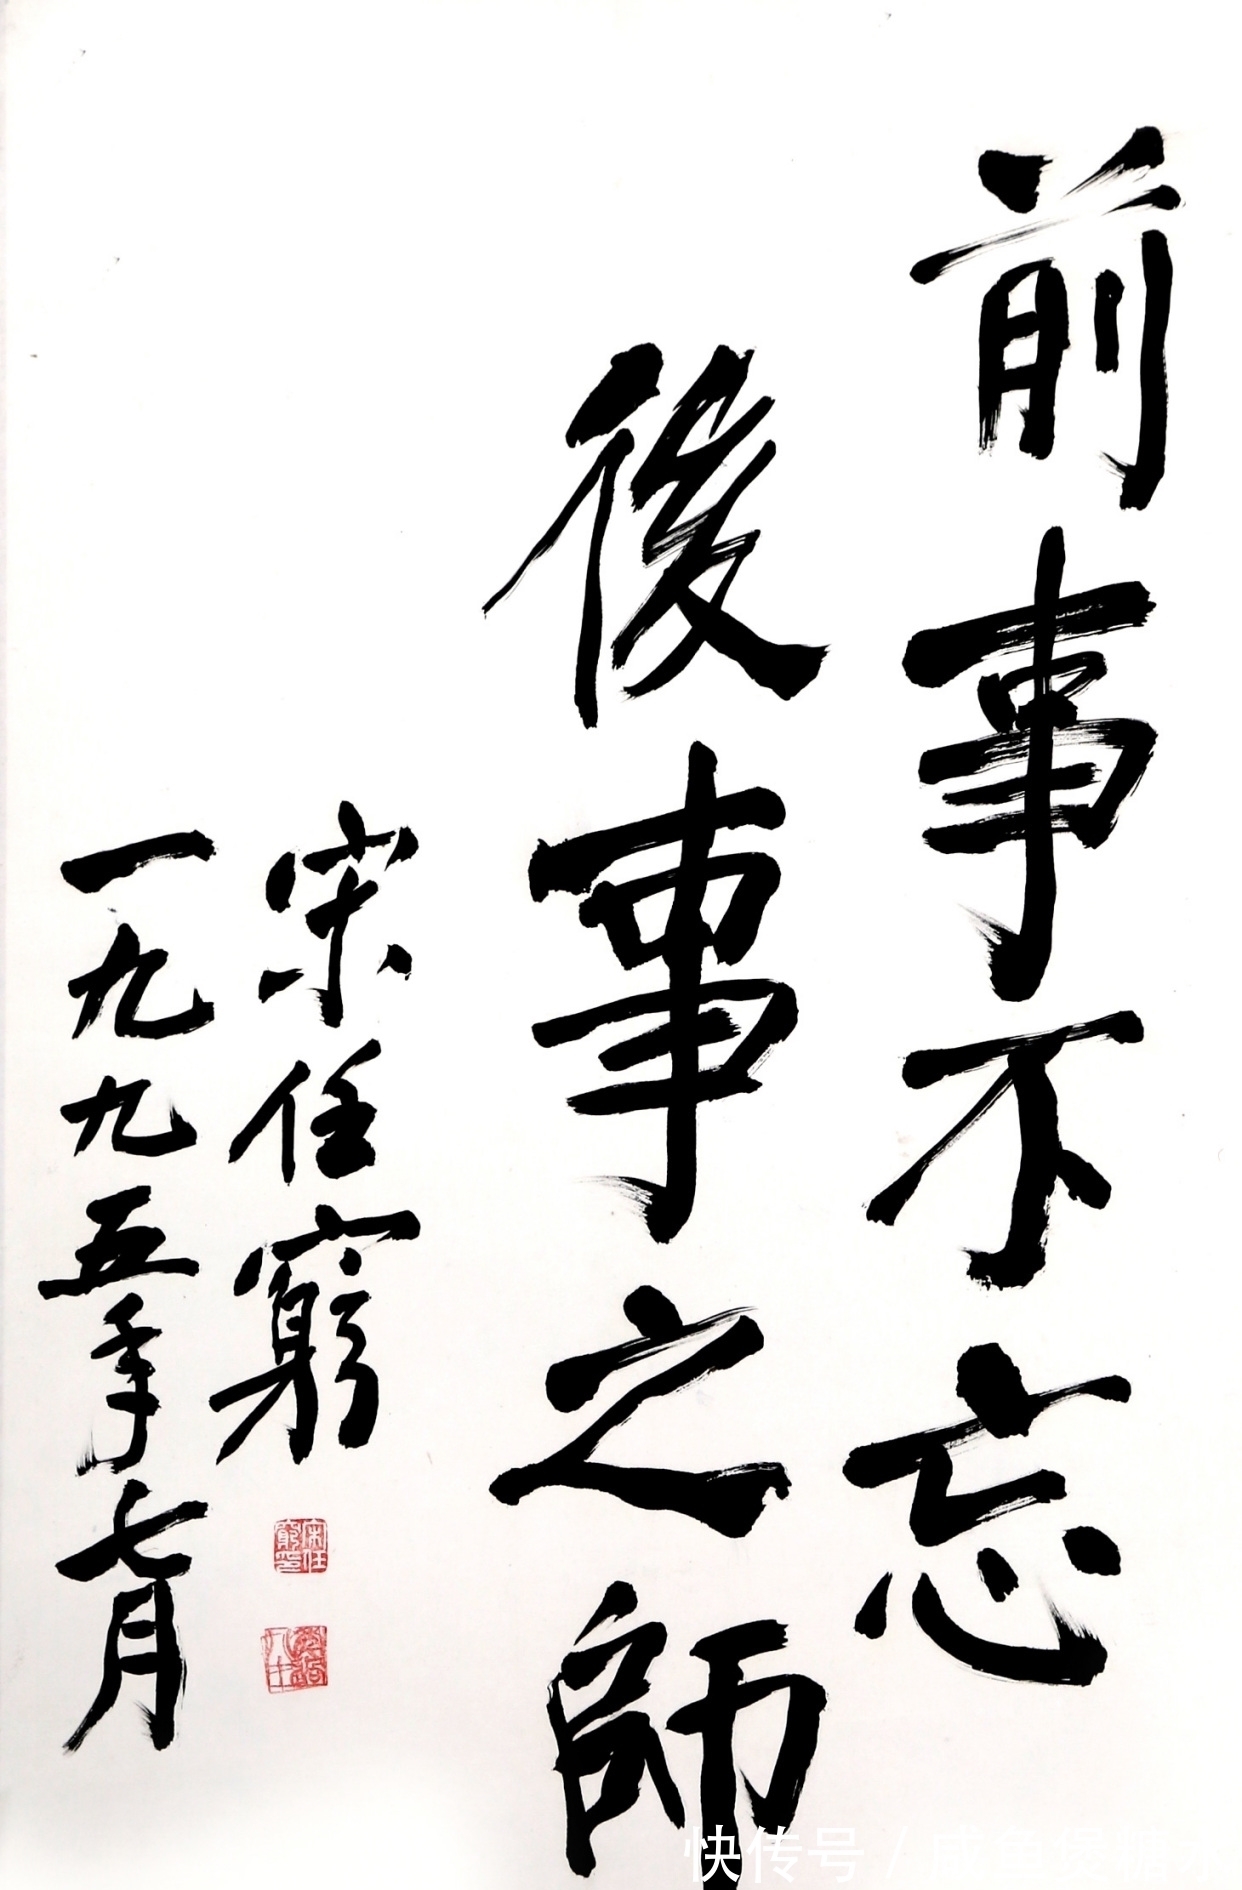 前事不忘
後事之師
宋任窮
一九九五年七月
宋任窮印
快传号/